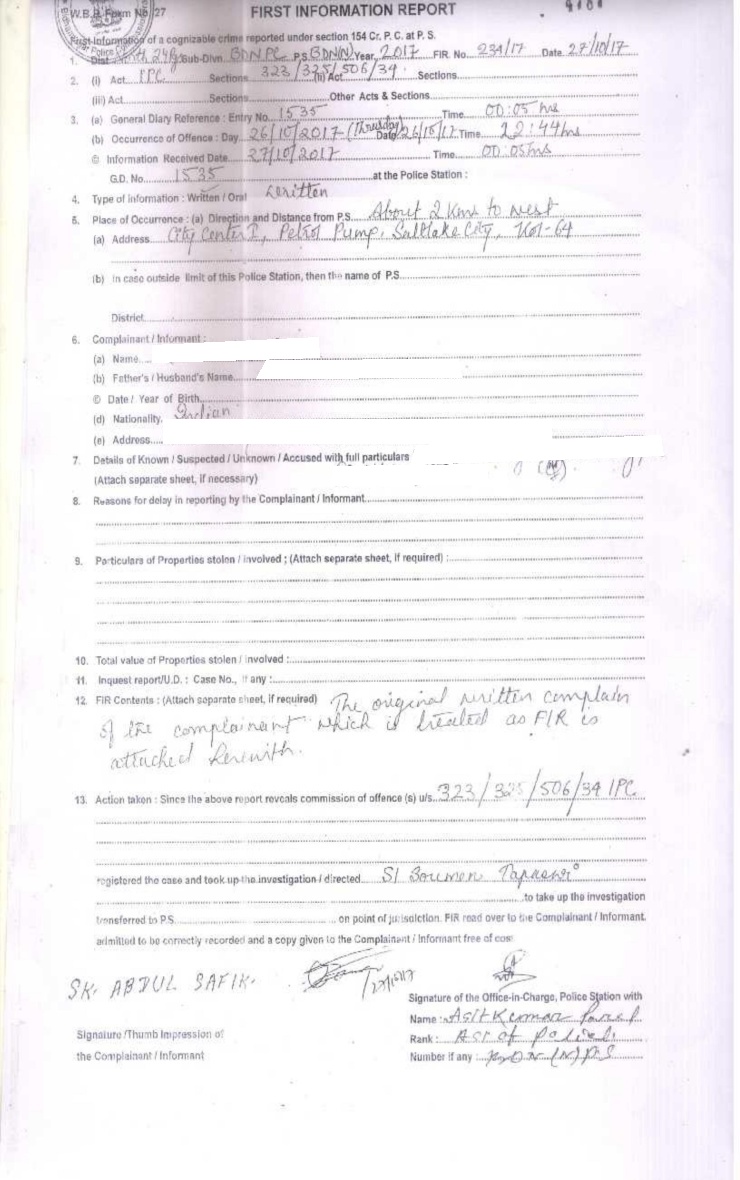 W.B.P. Form No. 27
FIRST INFORMATION REPORT
First Information of a cognizable crime reported under section 154 Cr. P. C. at P. S.
1. Dist. 24 Sub-Divn. BDN.PC P.S. BDN(N) Year, 2017 FIR. No. 234/17 Date 27/10/17
2. (i) Act IPC Sections 323/325/506/34. (ii) Act Sections
(iii) Act Sections Other Acts & Sections
3. (a) General Diary Reference : Entry No. 1535 Time 00:05 hrs
(b) Occurrence of Offence : Day 26/10/2017 (Thursday) Date 26/10/17 Time 22:44 hrs
© Information Received Date 27/10/2017 Time 00:05 hrs
G.D. No. 1535 at the Police Station :
4. Type of Information : Written / Oral Written
5. Place of Occurrence : (a) Direction and Distance from P.S. About 2 Kms to West
(a) Address City Center I, Petrol Pump, Saltlake City, Kol-64
(b) In case outside limit of this Police Station, then the name of P.S.
District
6. Complainant / Informant :
(a) Name
(b) Father's / Husband's Name
© Date / Year of Birth
(d) Nationality. Indian
(e) Address
7. Details of Known / Suspected / Unknown / Accused with full particulars
(Attach separate sheet, if necessary)
8. Reasons for delay in reporting by the Complainant / Informant
9. Particulars of Properties stolen / involved ; (Attach separate sheet, if required) :
10. Total value of Properties stolen / involved :
11. Inquest report/U.D. : Case No., if any :
12 FIR Contents : (Attach separate sheet, if required) The original written complain
of the complainant which is treated as FIR is
attached herewith.
13. Action taken : Since the above report reveals commission of offence (s) u/s. 323/325/506/34 IPC
registered the case and took up the investigation / directed SI
to take up the investigation
transferred to P.S. on point of jurisdiction. FIR read over to the Complainant / Informant,
admitted to be correctly recorded and a copy given to the Complainant / Informant free of cost
SK. ABDUL SAFIK.
27/10/17
Signature of the Office-in-Charge, Police Station with
Name : Asit Kumar
Signature /Thumb Impression of
Rank : ASI of Police
the Complainant / Informant
Number if any : BDN (N) PS